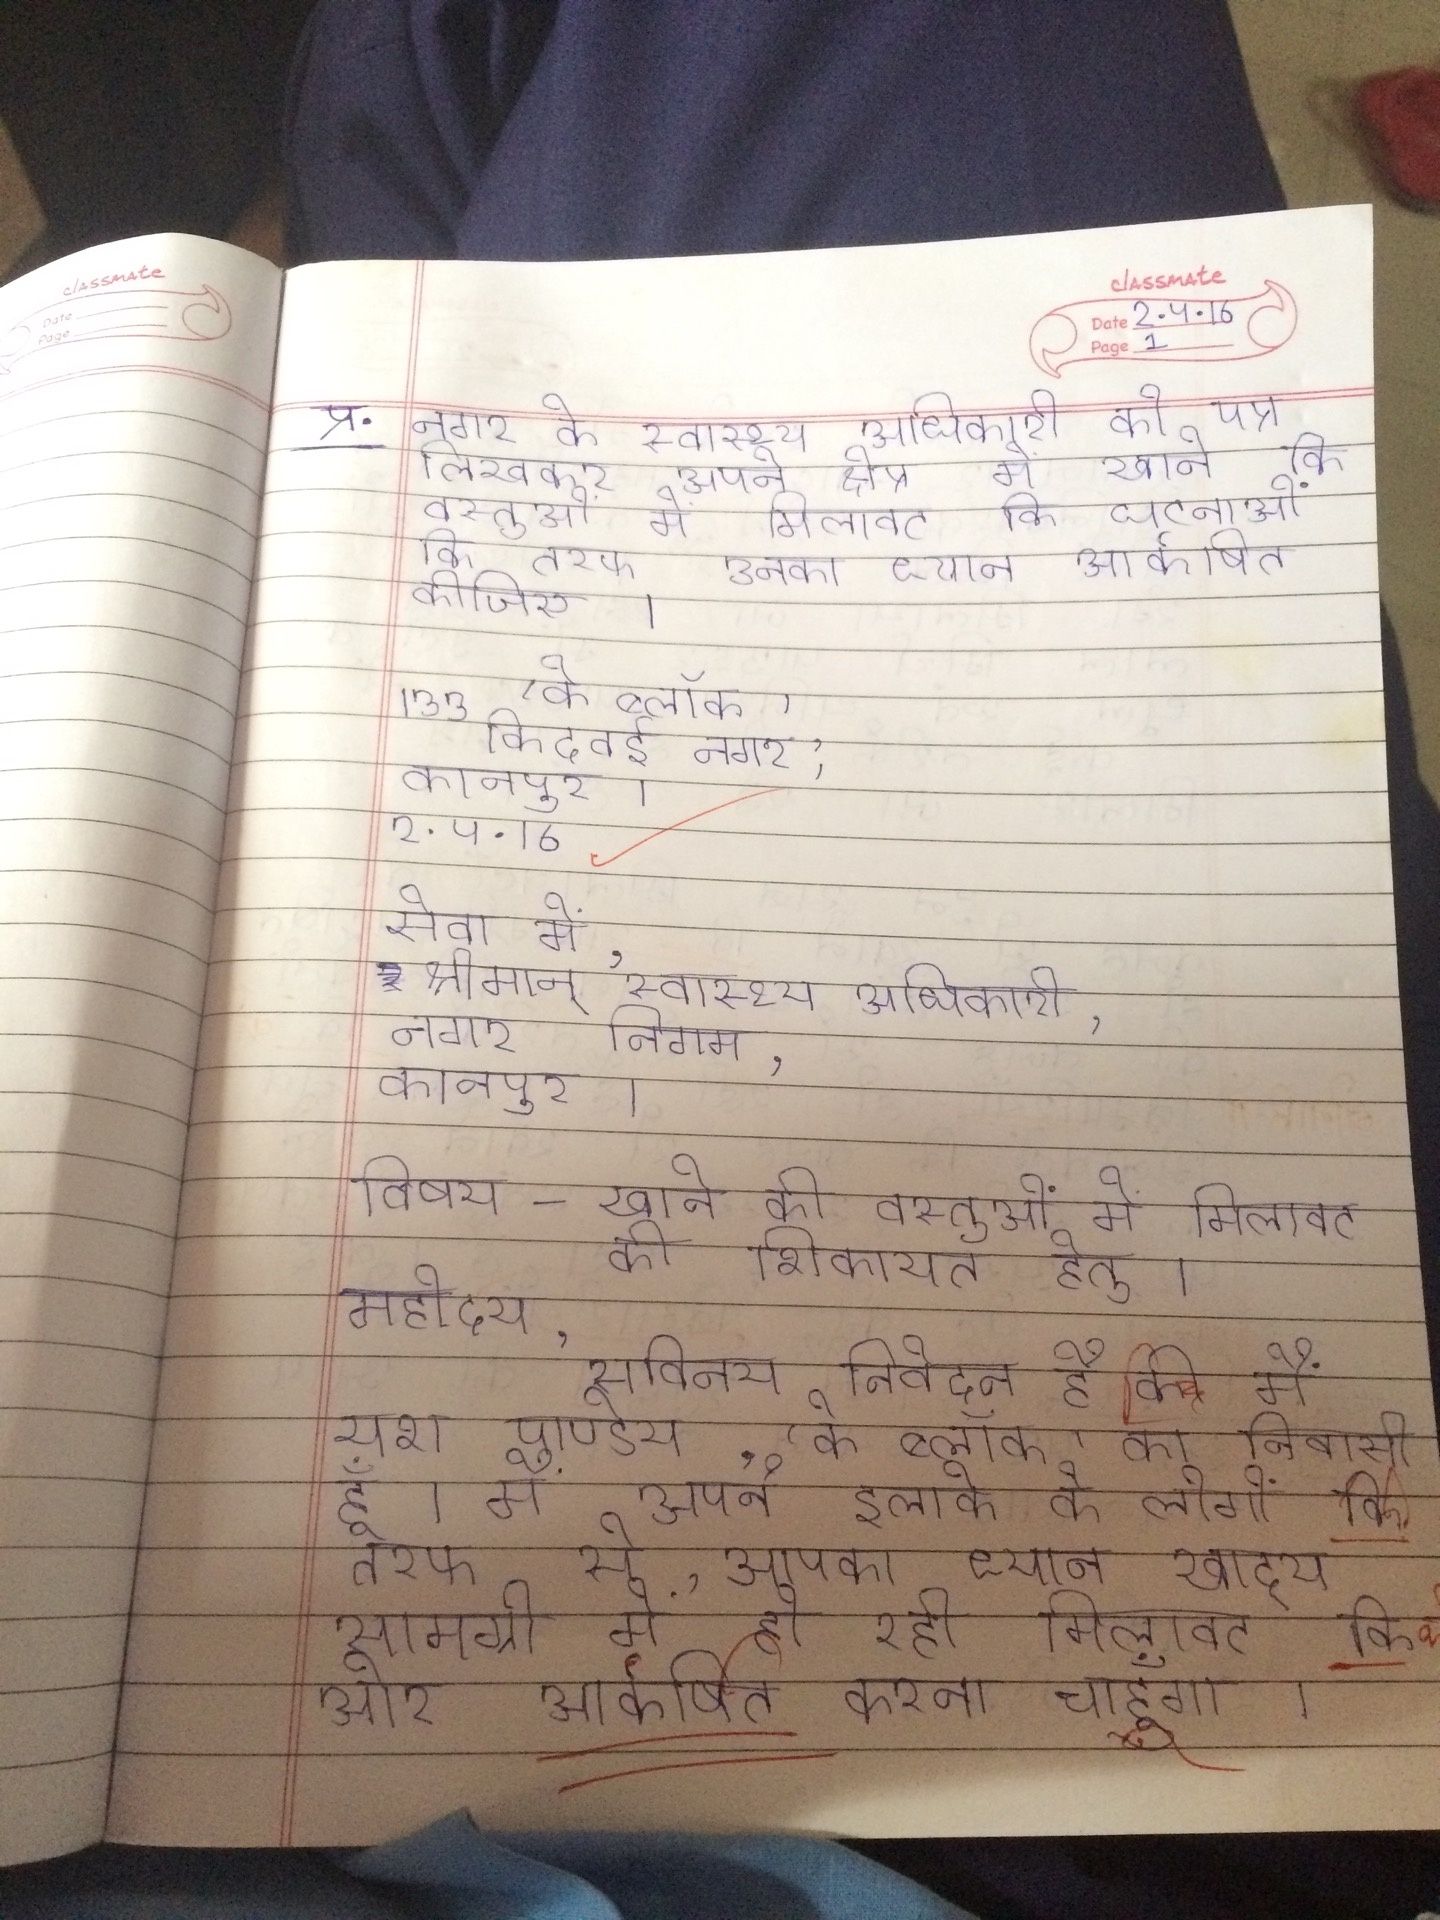 classmate
Date
Page
classmate
Date 2.4.16
Page 1
प्र. नगर के स्वास्थ्य अधिकारी को पत्र
लिखकर अपने क्षेत्र में खाने कि
वस्तुओं में मिलावट कि घटनाओं
कि तरफ उनका ध्यान आर्कषित
कीजिए ।
133 'के ब्लॉक'
किदवई नगर,
कानपुर ।
2.4.16
सेवा में,
श्रीमान् स्वास्थ्य अधिकारी,
नगर निगम,
कानपुर ।
विषय – खाने की वस्तुओं में मिलावट
की शिकायत हेतु ।
महोदय,
सविनय निवेदन है कि मैं
यश पाण्डेय, 'के ब्लॉक' का निवासी
हूँ । मैं अपने इलाके के लोगों कि
तरफ से, आपका ध्यान खाद्य
सामग्री में हो रही मिलावट कि
ओर आर्कषित करना चाहूँगा ।